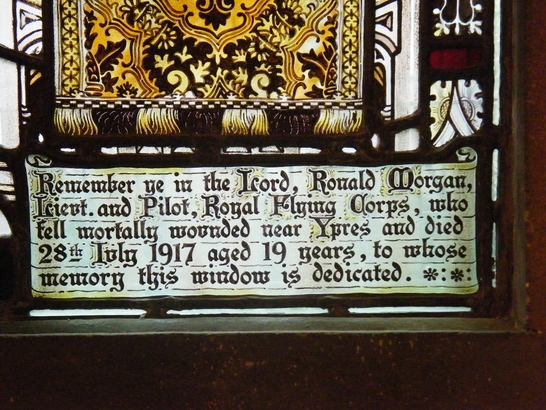 Remember ye in the Lord, Ronald Morgan,
Lievt. and Pilot, Royal Flying Corps, who
fell mortally wovnded near Ypres and died
28th Jvly 1917 aged 19 years, to whose
memory this window is dedicated. *:*: